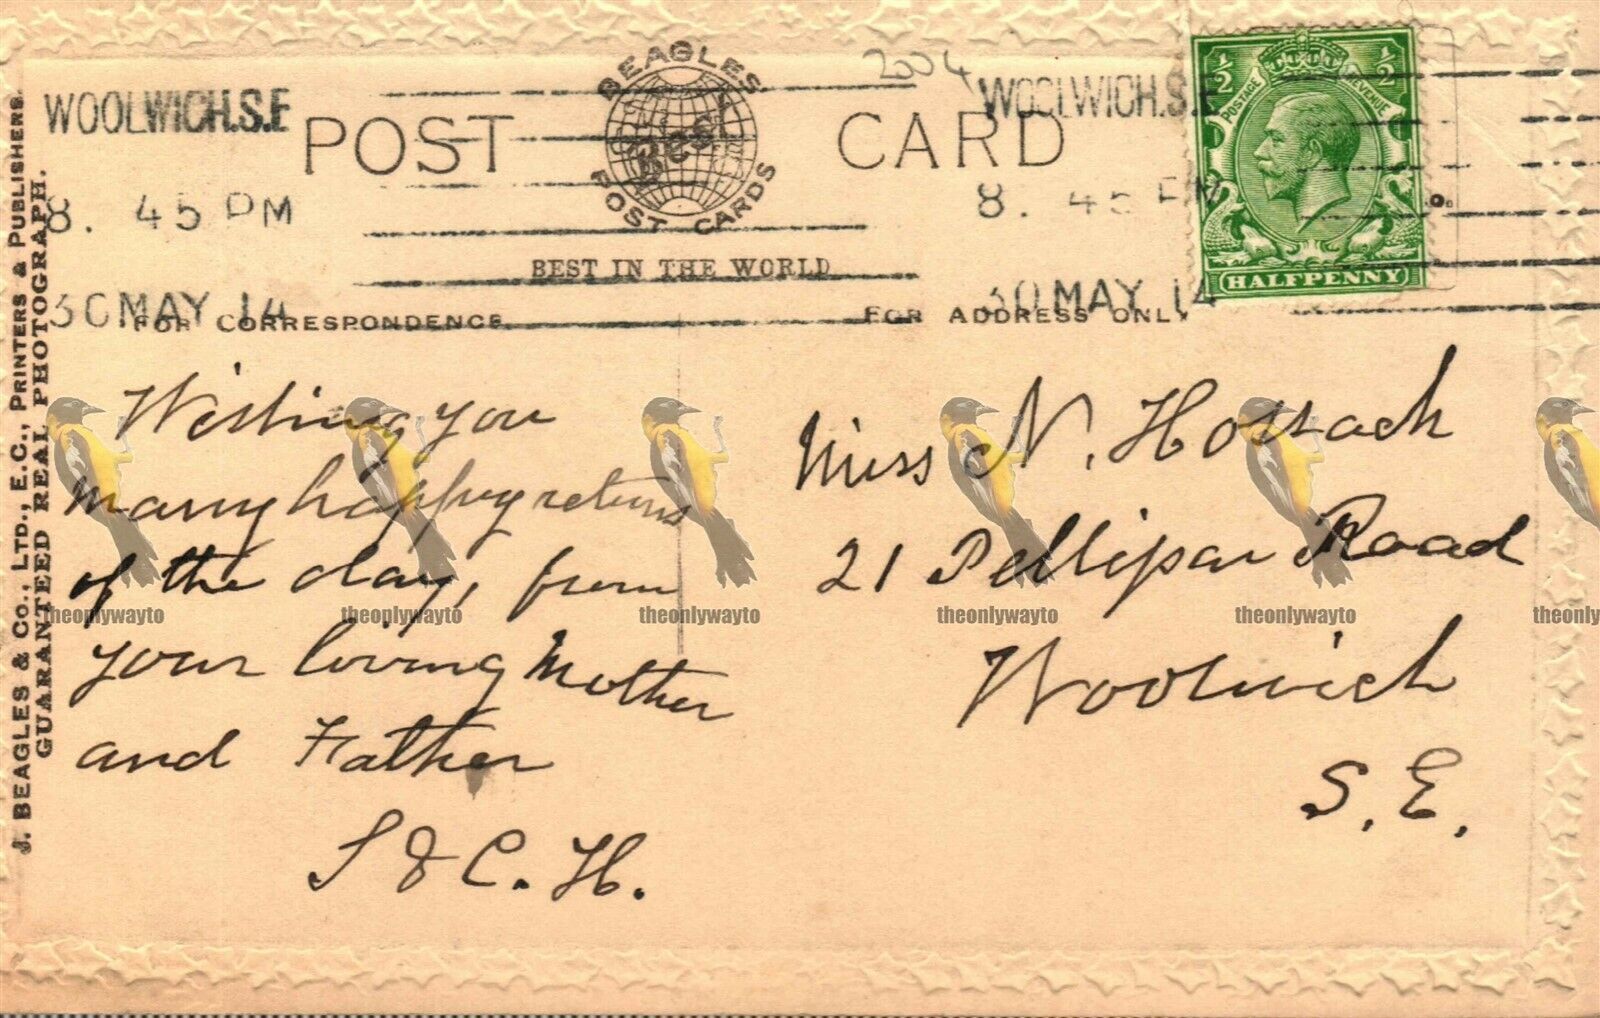 WOOLWICH.S.E
8. 45 PM
30 MAY 14
POST CARD
BEAGLES
BEST
POST CARDS
BEST IN THE WORLD
2004
WOOLWICH.S.E
8. 45 PM
30 MAY 14
½ ½
POSTAGE REVENUE
HALFPENNY
FOR CORRESPONDENCE
FOR ADDRESS ONLY
J. BEAGLES & CO., LTD., E.C., PRINTERS & PUBLISHERS.
GUARANTEED REAL PHOTOGRAPH.
Wishing you
many happy returns
of the day, from
your loving Mother
and Father
S & C. H.
Miss N. Hossack
21 Pellipar Road
Woolwich
S.E.
theonlywayto theonlywayto theonlywayto theonlywayto theonlywayto theonlywayto